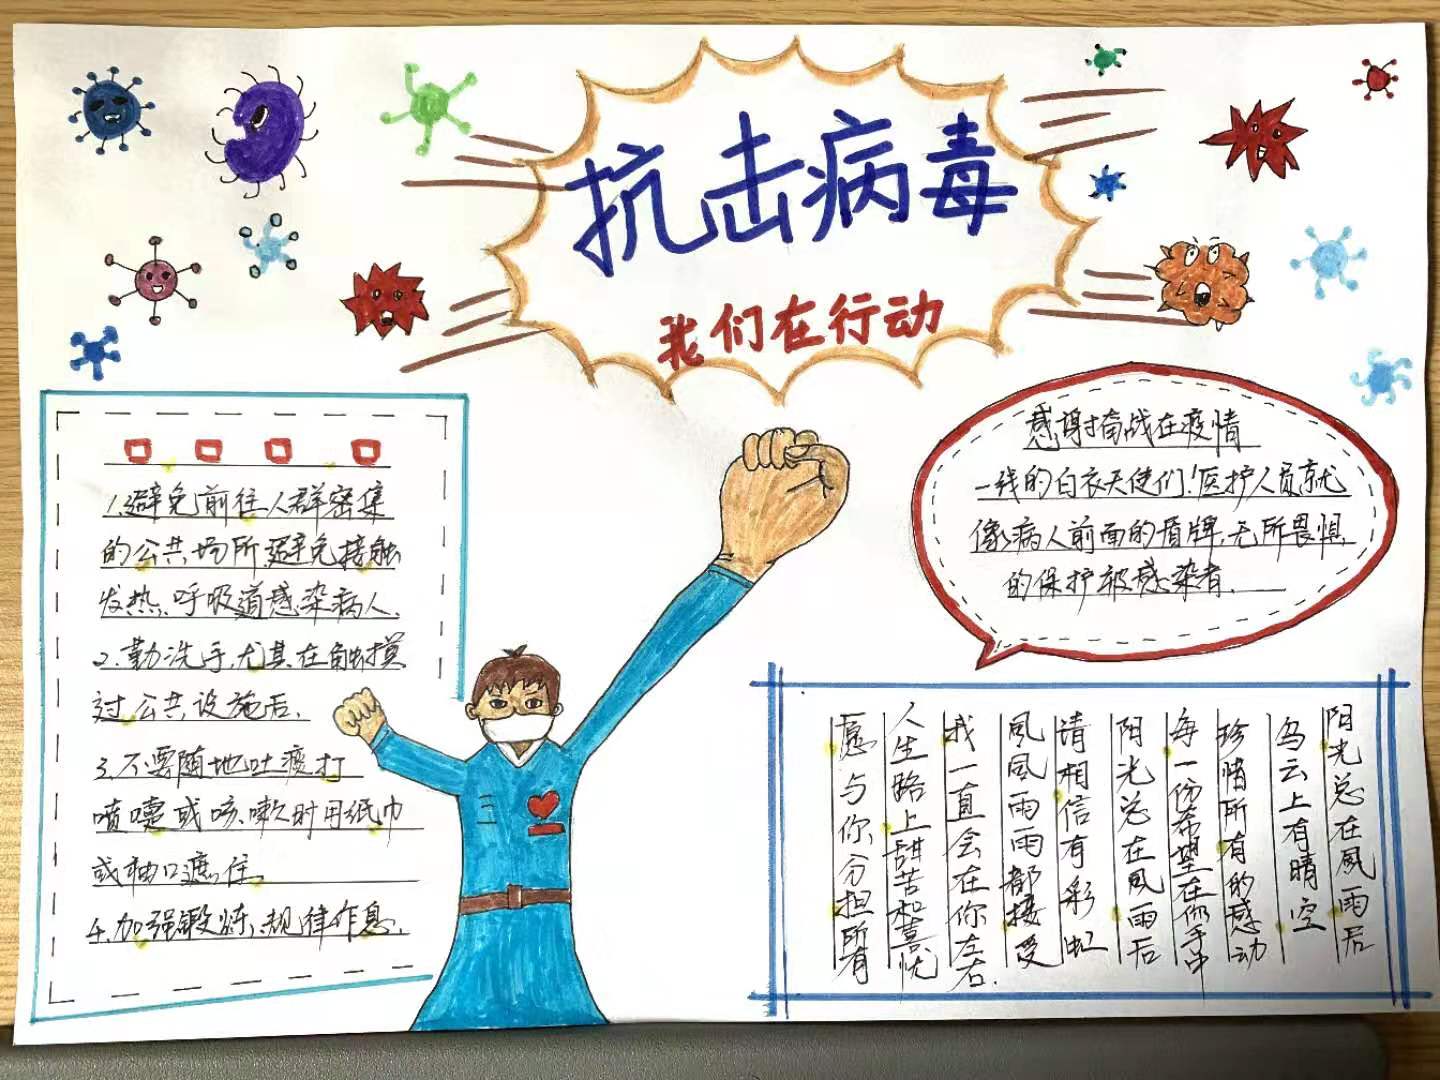 抗击病毒
我们在行动
1.避免前往人群密集
的公共场所,避免接触
发热、呼吸道感染病人、
2.勤洗手,尤其在触摸
过公共设施后、
3.不要随地吐痰打
喷嚏或咳嗽时用纸巾
或袖口遮住、
4.加强锻炼,规律作息、
感谢奋战在疫情
一线的白衣天使们!医护人员就
像病人前面的盾牌,无所畏惧
的保护被感染者、
阳光总在風雨后
乌云上有晴空
珍惜所有的感动
每一份希望在你手中
阳光总在風雨后
请相信有彩虹
風風雨雨都接受
我一直会在你左右.
人生路上甜苦和喜忧
愿与你分担所有